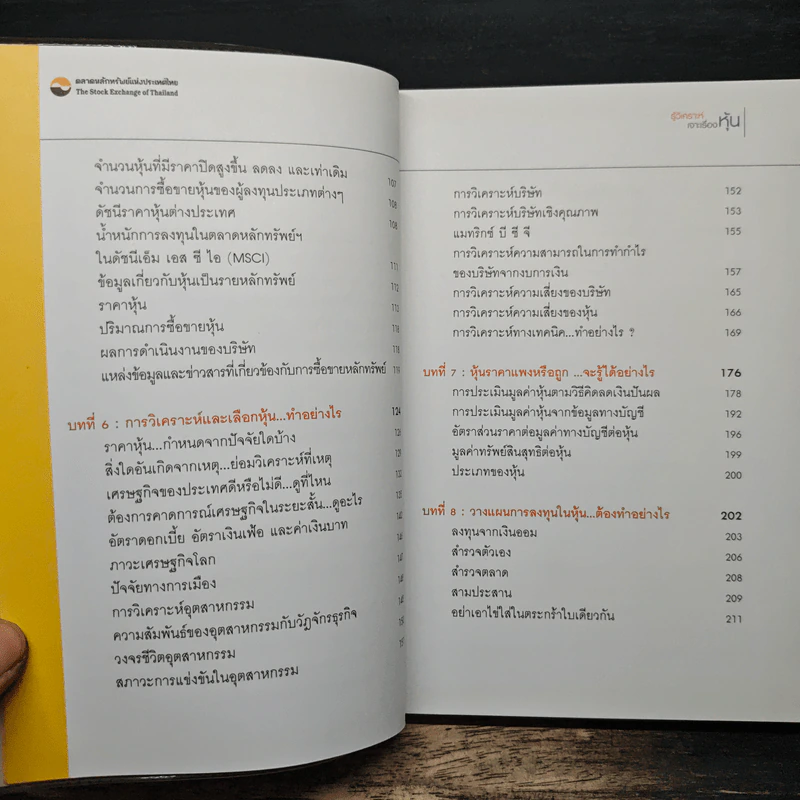 ตลาดหลักทรัพย์แห่งประเทศไทย
The Stock Exchange of Thailand
จำนวนหุ้นที่มีราคาปิดสูงขึ้น ลดลง และเท่าเดิม 107
จำนวนการซื้อขายหุ้นของผู้ลงทุนประเภทต่างๆ
ดัชนีราคาหุ้นต่างประเทศ 108
น้ำหนักการลงทุนในตลาดหลักทรัพย์ฯ
ในดัชนีเอ็ม เอส ซี ไอ (MSCI) 111
ข้อมูลเกี่ยวกับหุ้นเป็นรายหลักทรัพย์ 112
ราคาหุ้น
ปริมาณการซื้อขายหุ้น 116
ผลการดำเนินงานของบริษัท 118
แหล่งข้อมูลและข่าวสารที่เกี่ยวข้องกับการซื้อขายหลักทรัพย์ 119
บทที่ 6 : การวิเคราะห์และเลือกหุ้น...ทำอย่างไร 124
ราคาหุ้น...กำหนดจากปัจจัยใดบ้าง
สิ่งใดอันเกิดจากเหตุ...ย่อมวิเคราะห์ที่เหตุ
เศรษฐกิจของประเทศดีหรือไม่ดี...ดูที่ไหน
ต้องการคาดการณ์เศรษฐกิจในระยะสั้น...ดูอะไร
อัตราดอกเบี้ย อัตราเงินเฟ้อ และค่าเงินบาท
ภาวะเศรษฐกิจโลก
ปัจจัยทางการเมือง
การวิเคราะห์อุตสาหกรรม
ความสัมพันธ์ของอุตสาหกรรมกับวัฏจักรธุรกิจ
วงจรชีวิตอุตสาหกรรม
สภาวะการแข่งขันในอุตสาหกรรม
รู้วิเคราะห์
เจาะเรื่อง หุ้น
การวิเคราะห์บริษัท 152
การวิเคราะห์บริษัทเชิงคุณภาพ 153
แมทริกซ์ บี ซี จี 155
การวิเคราะห์ความสามารถในการทำกำไร
ของบริษัทจากงบการเงิน 157
การวิเคราะห์ความเสี่ยงของบริษัท 165
การวิเคราะห์ความเสี่ยงของหุ้น 166
การวิเคราะห์ทางเทคนิค...ทำอย่างไร ? 169
บทที่ 7 : หุ้นราคาแพงหรือถูก ...จะรู้ได้อย่างไร 176
การประเมินมูลค่าหุ้นตามวิธีคิดลดเงินปันผล 178
การประเมินมูลค่าหุ้นจากข้อมูลทางบัญชี 192
อัตราส่วนราคาต่อมูลค่าทางบัญชีต่อหุ้น 196
มูลค่าทรัพย์สินสุทธิต่อหุ้น 199
ประเภทของหุ้น 200
บทที่ 8 : วางแผนการลงทุนในหุ้น...ต้องทำอย่างไร 202
ลงทุนจากเงินออม 203
สำรวจตัวเอง 206
สำรวจตลาด 208
สามประสาน 209
อย่าเอาไข่ใส่ในตระกร้าใบเดียวกัน 211